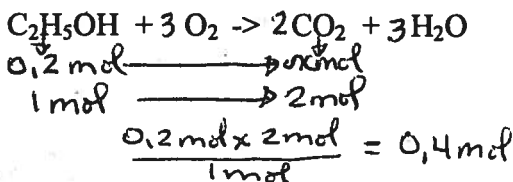 C₂H₅OH + 3 O₂ -> 2CO₂ + 3H₂O
0,2 mol → x mol
1 mol → 2 mol
0,2 mol x 2 mol
1 mol
= 0,4 mol